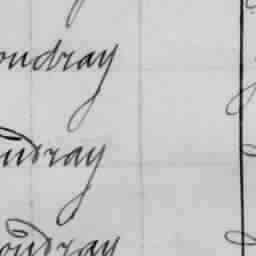 oudray
udray
oudray